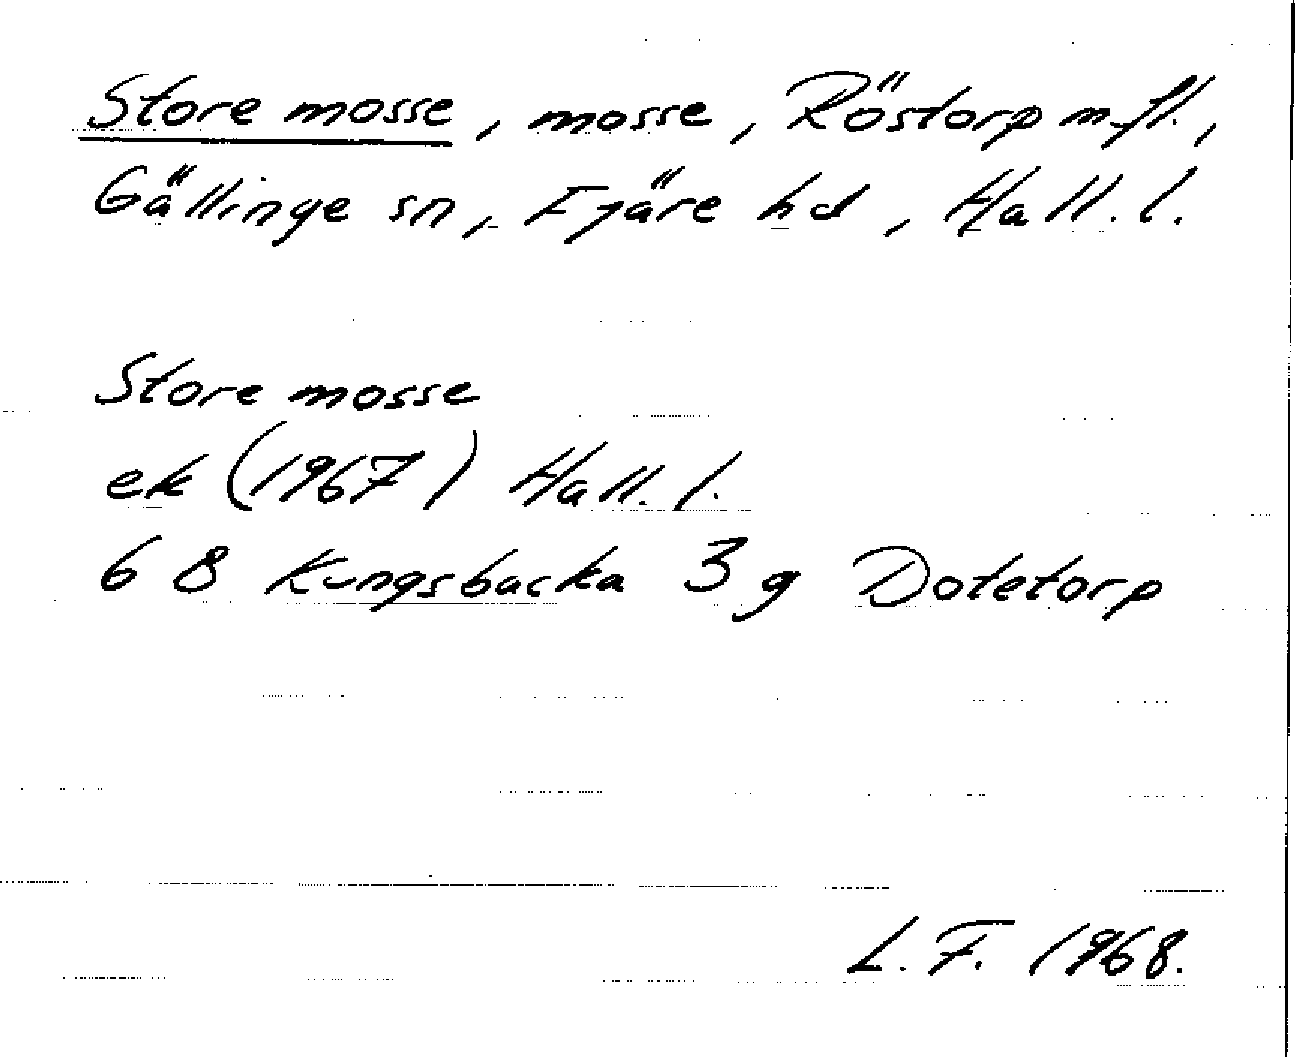 Store mosse, mosse, Röstorp m.fl.,
Gällinge sn, Fjäre hd, Hall. l.
Store mosse
ek (1967) Hall. l.
6 B Kungsbacka 3 g Dotetorp
L. F. 1968.